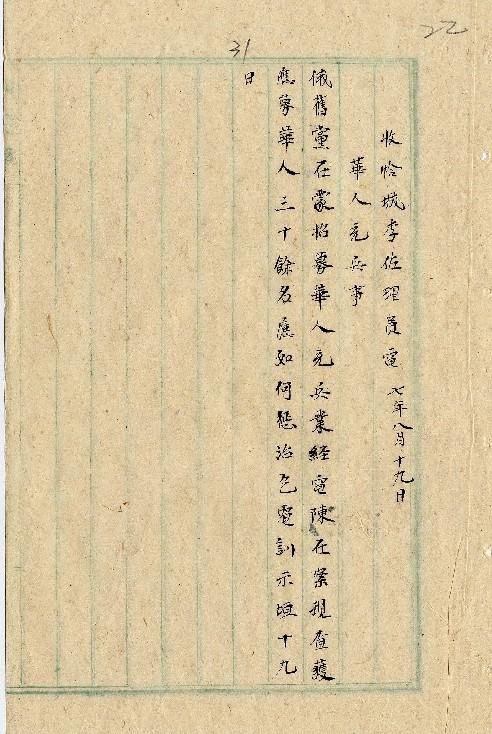 22
31
收恰城李佐理員電 七年八月十九日
華人充兵事
俄舊黨在蒙招募華人充兵業經電陳在案現查獲
應募華人三十餘名應如何懲治乞電訓示垣十九
日